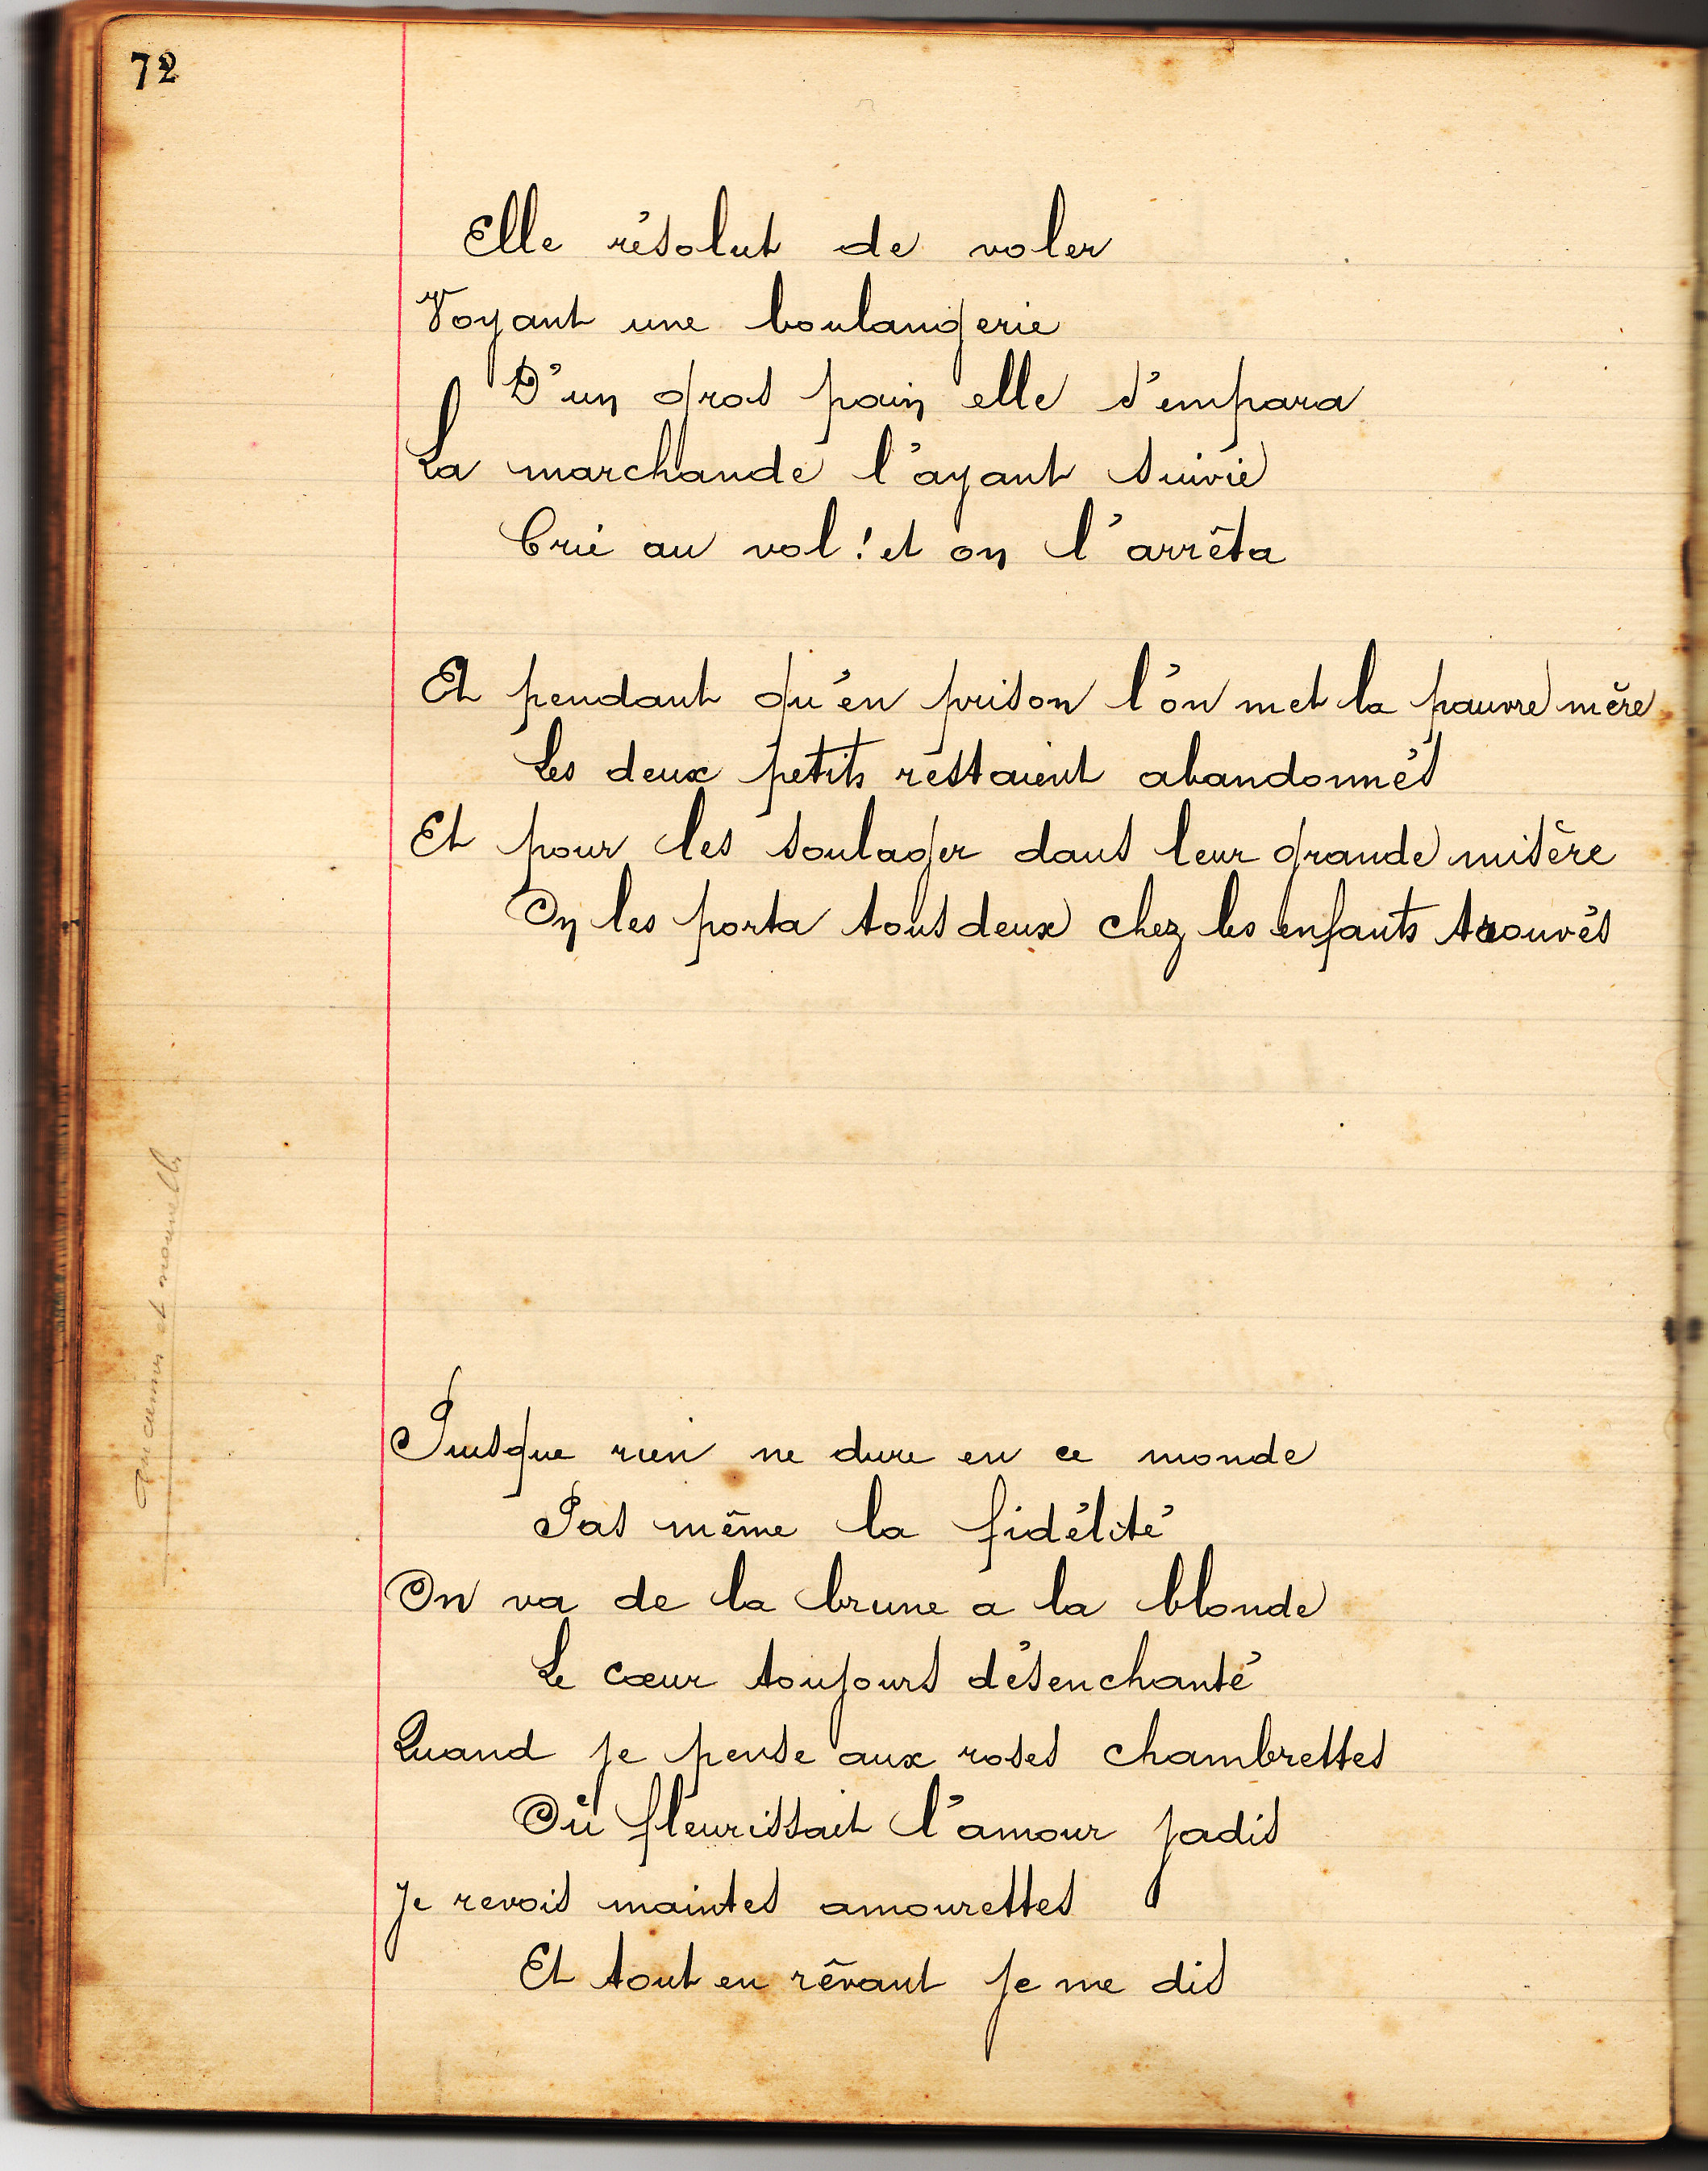 72
Elle résolut de voler
Voyant une boulangerie
D'un gros pain elle s'empara
La marchande l'ayant suivie
Crie au vol! et on l'arrêta
Et pendant qu'en prison l'on met la pauvre mère
Les deux petits restaient abandonnés
Et pour les soulager dans leur grande misère
On les porta tous deux chez les enfants trouvés
et nouvelle
Puisque rien ne dure en ce monde
Pas même la fidélité
On va de la brune a la blonde
Le cœur toujours désenchanté
Quand je pense aux roses chambrettes
Où fleurissait l'amour jadis
Je revois maintes amourettes
Et tout en rêvant je me dis